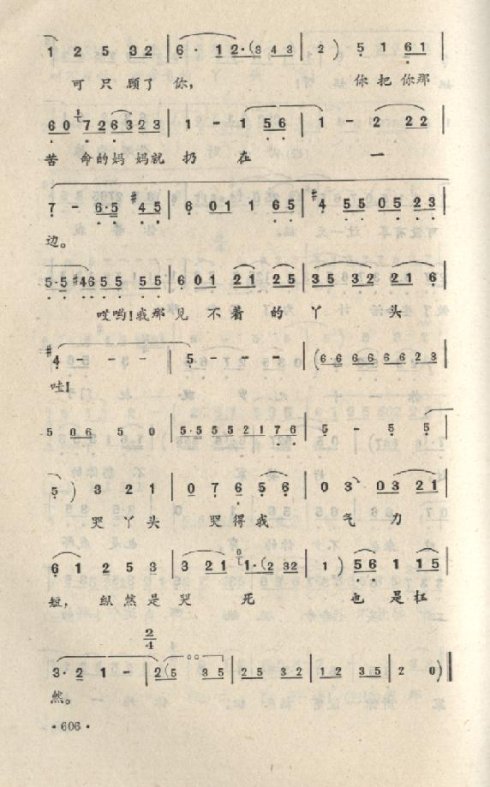 1 2 5 32 | 6·12·(343 | 2) 5 1 61 |
可只顾了你， 你把你那
60 726323 | 1 - 1 56 | 1 - 2 22 |
苦命的妈妈就扔在一
7 - 6·5 #45 | 6 01 1 65 | #4 55 05 23 |
边。
5·5 #4655 55 | 601 21 25 | 35 32 21 6 |
哎哟！我那见不着的丫头
#4 - - - | 5 - - - | (6·6 666623 |
哇！
5 06 5 0 | 5·555 2176 | 5 - 5 5 |
5) 3 21 | 07 65 6 | 03 03 21 |
哭丫头哭得我气力
61 25 3 | 3 21 1·(232 | 1) 56 1 15 |
短，纵然是哭死也是枉
2/4
3·2 1 - | 2(5 35 | 25 32 | 12 35 | 2 0) ‖
然。
·606·